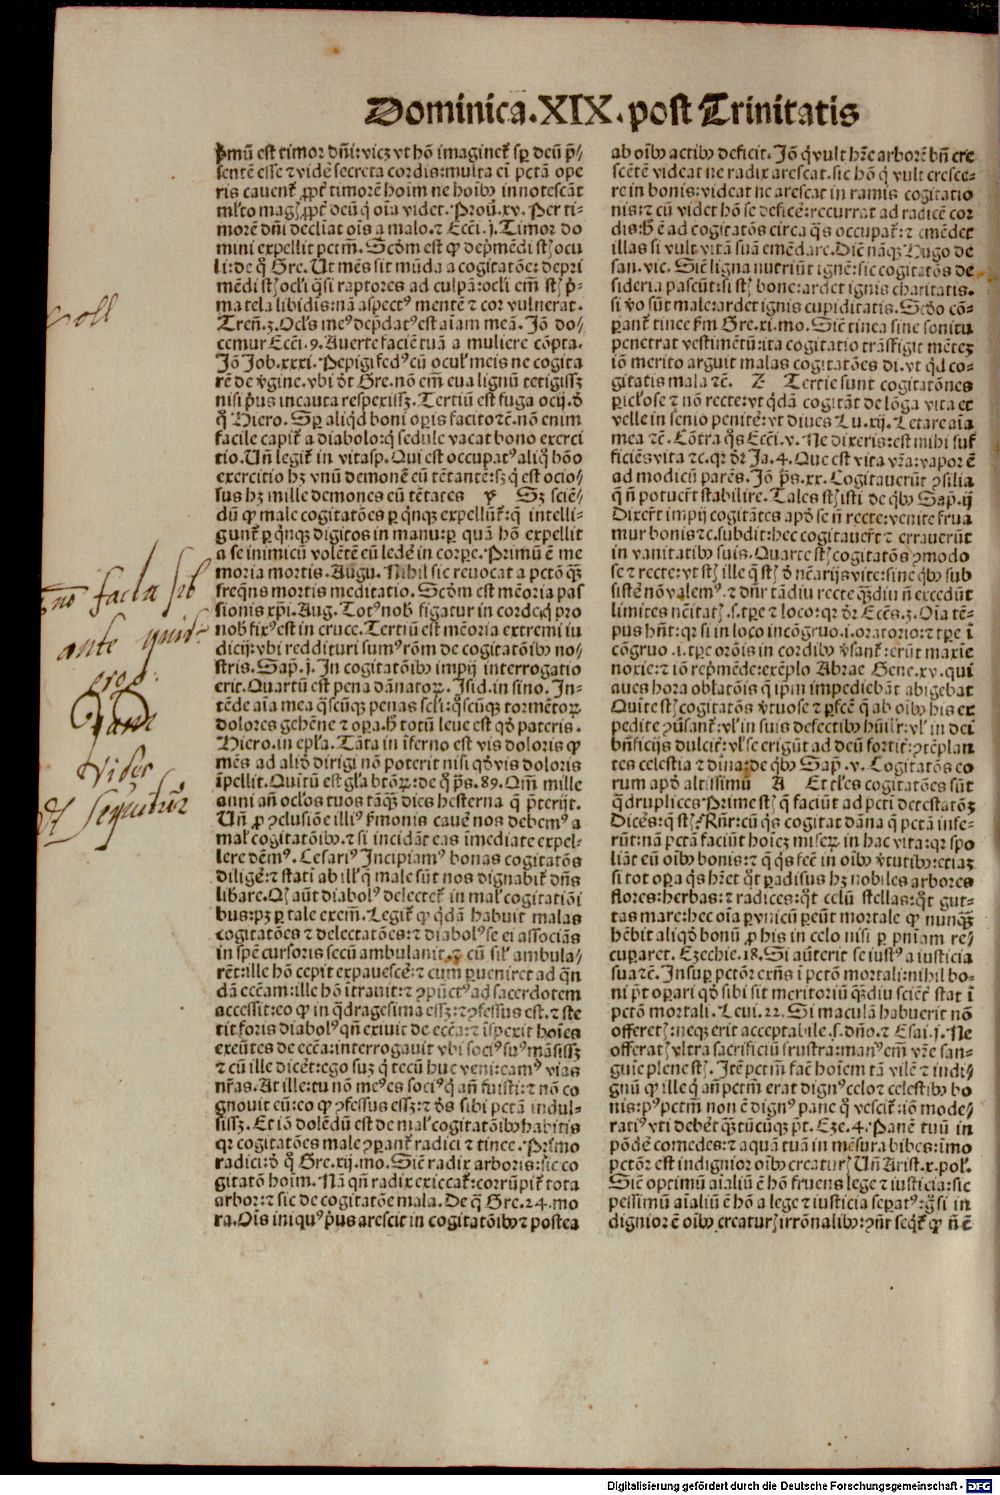 Dominica.XIX.post Trinitatis
p̄mū est timor dn̄i:vicꝫ vt hō imaginet᷒ sp̲ deū p̄⸗
sentē esse ⁊ vidē secreta cordis:multa ei̅ pctā ope
ris cauent᷒ ꝓpt̄ timorē hoim ne hoib᷒ innotescāt
ml̄to mag᷒ ꝓpt̄ deū q̇ oīa videt. Prou̅.xv. Per ti⸗
morē dn̄i decliat oīs a malo.⁊ Ecci̅.j. Timor do
mini expellit pctm̄. Scd̄m est ꝙ dep̄mēdi st᷒ ocu
li:de q̊ Gre. Ut mēs sit mūda a cogitatōe: depri
mēdi st᷒ ocl̄i q̄si raptores ad culpā:ocl̄i em̄ st᷒ p̄⸗
ma tela libidīs:nā aspect᷒ mentē ⁊ cor vulnerat.
Tren̄.3. Ocl̄s me᷒ dep̄dat᷒ est aīam meā. Iō do⸗
cemur Ecci̅.9. Auerte faciē tuā a muliere cōpta.
Iō Iob.xxxi. Pepigi fed᷒ cū ocul᷒ meis ne cogita
rē de v̇gine.vbi d̄t Gre. nō em̄ eua lignū tetigissꝫ
nisi p̄us incauta respexissꝫ. Tertiū est fuga ocij.d̄
q̊ Hiero. Sp̲ aliqd̄ boni op̲is facito ⁊c̄. nō enim
facile capit᷒ a diabolo:q̇ sedule vacat bono exerci
tio. Un̄ legit᷒ in vitasp̲. Qui est occupat᷒ aliq̊ bōo
exercitio hꝫ vnū demonē eū tētantē:sꝫ q̇ est ocio⸗
sus hꝫ mille demones eū tētātes Sꝫ sciē⸗
dū ꝙ male cogitatōes p̲ q̇nqꝫ expellūt᷒:q̄ intelli⸗
gunt᷒ p̲ q̇nqꝫ digitos in manu:p̲ quā hō expellit
a se inimicū volētē eū ledē in corpe. Primū ē me
moria mortis. Augu. Nihil sic reuocat a pctō q̄ꝫ
freq̄ns mortis meditatio. Scd̄m est mēoria pas
sionis xp̄i. Aug. Tot᷒ nob᷒ figatur in corde:q̇ pro
nob᷒ fix᷒ est in cruce. Tertiū est mēoria extremi iu
dicij:vbi reddituri sum᷒ rōm de cogitatōib᷒ no⸗
stris. Sap̄.j. In cogitatōib᷒ impij interrogatio
erit. Quartū est pena dānatoꝝ. Isid.in sino. In⸗
tēde aīa mea q̄scūqꝫ penas scl̄i:q̄scūqꝫ tormētoꝝ
dolores gehēne ⁊ op̲a.h̄ totū leue est qd̄ pateris.
Hiero.in ep̄l̄a. Tāta in īferno est vis doloris ꝙ
mēs ad aliḋ dirigi nō poterit nisi qḋ vis doloris
īpellit. Quītū est gl̄a btōꝝ:de q̄ p̄s.89. Qm̄ mille
anni an̄ ocl̄os tuos tāqꝫ dies hesterna q̄ p̄terijt.
Un̄ ꝓ ꝯclusiōe illi᷒ fmonis cauē nos debem᷒ a
mal᷒ cogitatōib᷒.⁊ si incidāt eas īmediate expel⸗
lere dēm᷒. Cesari᷒ Incipiam᷒ bonas cogitatōs
diligē:⁊ stati̅ ab ill᷒ q̄ male sūt nos dignabit᷒ dn̄s
libare. Qꝫ aūt diabol᷒ delectet᷒ in mal᷒ cogitatiōi
bus:pꝫ p̲ tale exem̄. Legit᷒ ꝙ q̇dā habuit malas
cogitatōes ⁊ delectatōes:⁊ diabol᷒ se ei associās
in spē cursoris secū ambulauit.⁊ cū sil᷒ ambula⸗
rēt:ille hō cepit expauescē:⁊ cum p̲ueniret ad q̄n
dā ecc̄am:ille hō ītrauit:⁊ ꝯpūct᷒ ad sacerdotem
accessit:eo ꝙ in q̄dragesima essꝫ:⁊ ꝯfessus est.⁊ ste
tit foris diabol᷒ qn̄ exiuit de ecc̄a:⁊ īspexit hoīes
exeūtes de ecc̄a:interrogauit vbi soci᷒ su᷒ māsissꝫ
⁊ cū ille dicēt:ego suꝫ q̇ tecū huc veni:eam᷒ vias
nr̄as. At ille:tu nō me᷒ es soci᷒ q̇ an̄ fuisti:⁊ nō co
gnouit eū:eo ꝙ ꝯfessus essꝫ:⁊ d̄s sibi pctā indul⸗
sissꝫ. Et iō dolēdū est de mal᷒ cogitatōib᷒ habitis
qr cogitatōes male ꝯparant᷒ radici ⁊ tinee. Primo
radici:d̄ q̊ Gre.xij.mo. Sic̄ radix arboris:sic co
gitatō hoīm. Nā qn̄ radix exiccat᷒:corrūpit᷒ tota
arbor:⁊ sic de cogitatōe mala. De q̊ Gre.24.mo
ra. Oīs iniqu᷒ p̄us arescit in cogitatōib᷒ ⁊ postea
ab oīb᷒ actib᷒ deficit. Iō q̇ vult hr̄e arborē bn̄ cre
scētē videat ne radix arescat.sic hō q̇ vult cresce⸗
re in bonis:videat ne arescat in ramis cogitatio
nis:⁊ cū videt hō se deficē:recurrat ad radicē cor
dis:h̄ ē ad cogitatōs circa q̄s occupat᷒:⁊ emēdet
illas si vult vitā suā emēdare. Diē nāqꝫ Hugo de
san.vic. Sic̄ ligna nutriūt ignē:sic cogitatōs de
sideria pascūt:si st᷒ bone:ardet ignis charitatis.
si v̊o sūt male:ardet ignis cupiditatis. Scd̄o cō⸗
parant᷒ tinee fm̄ Gre.xi.mo. Sic̄ tinea sine sonitu
penetrat vestimētū:ita cogitatio trāsfigit mētēꝫ
iō merito arguit malas cogitatōes di.vt qd̄ co⸗
gitatis mala ⁊c̄. Z Tertie sunt cogitatōnes
p̲iclose ⁊ nō recte:vt q̇dā cogitāt de lōga vita et
velle in senio penitē:vt diues Lu.xij. Letare aīa
mea ⁊c̄. Cōtra q̄s Ecci̅.v. Ne dixeris:est mihi suf
ficiēs vita ⁊c.qr d̄r Ja.4. Que est vita vr̄a:vapor ē
ad modicū parēs. Iō p̄s.xx. Cogitauerūt ꝯsilia
q̄ n̄ potuer̄t stabilire. Tales st᷒ isti de qb᷒ Sap̄.ij
Dixer̄t impij cogitātes apd̄ se n̄ recte:venite frua
mur bonis ⁊c.subdit:hec cogitauer̄t ⁊ errauerūt
in vanitatib᷒ suis. Quarte st᷒ cogitatōs ꝯmodo
se ⁊ recte:vt st᷒ ille q̄ st᷒ d̄ nc̄arijs vite:sine qb᷒ sub
sistē nō valem᷒.⁊ dn̄r tādiu recte q̄ꝫdiu n̄ excedūt
limites nc̄itat᷒.s.tp̲e ⁊ loco:qr d̄r Ecc̄s.3. Oīa tē⸗
pus hn̄t:qr si in loco incōgruo.i.oratorio:⁊ tp̲e ī
cōgruo.i.tp̲e orōis in cordib᷒ v̇sant᷒:erūt maxie
noxie:⁊ iō rep̄mēde:exēplo Abrae Gene.xv.qui
aues hora oblatōis q̄ ip̄m impediebāt abigebat
Quīte st᷒ cogitatōs v̇tuose ⁊ pfcē q̄ ab oīb᷒ his ex
pedite ꝯv̇sant᷒:vl᷒ in suis defectib᷒ hūilr̄:vl᷒ in dei
bn̄ficijs dulcit᷒:vl᷒ se erigūt ad deū fortit᷒:ꝯtēplan
tes celestia ⁊ diūa:de qb᷒ Sap̄.v. Cogitatōes eo
rum apd̄ altissimū A Et tl̄es cogitatōes sūt
q̄druplices Prime st᷒ q̄ faciūt ad pcti̅ detestatōꝫ
Dices:q̄ st᷒? Rn̄r:cū q̇s cogitat dāna q̄ pctā infe⸗
rūt:nā pctā faciūt hoīeꝫ miseꝝ in hac vita:qr spo
liāt eū oīb᷒ bonis:⁊ q̄ q̇s fecē in oīb᷒ v̇tutib᷒:etiaꝫ
si tot op̲a q̇s hr̄et qt̄ p̲adisus hꝫ nobiles arbores
flores:herbas:⁊ radices:qt̄ celū stellas:qt̄ gut⸗
tas mare:hec oīa p̲ vnicū p̲eūt mortale ꝙ nunqꝫ
hēbit aliqḋ bonū ꝓ his in celo nisi p̲ pn̄iam re⸗
cuparet. Ezechie.18. Si auerterit se iust᷒ a iusticia
sua ⁊c̄. Insup̲ pctōr ex̄ns ī pctō mortali:nihil bo⸗
ni p̄t op̲ari qḋ sibi sit meritoriū q̄ꝫdiu sciēt̄ stat ī
pctō mortali. Leui.22. Si maculā habuerit nō
offeret᷒:neqꝫ erit acceptabile.s.dn̄o.⁊ Esai.j. Ne
offerat᷒ vltra sacrificiū frustra:man᷒ em̄ vr̄e san⸗
guīe plene st᷒. Itē pctm̄ fac̄ hoīem tā vilē ⁊ indi⸗
gnū ꝙ ille q̇ an̄ pctm̄ erat dign᷒ celo ⁊ celestib᷒ bo
nis:p᷒ pctm̄ non ē dign᷒ pane q̊ vescit᷒:iō mode⸗
rati᷒ vti debet q̄ꝫtūcūqꝫ p̄t. Eze.4. Panē tuū in
pōdē comedes:⁊ aquā tuā in mēsura bibes:īmo
pctōr est indignior oīb᷒ creatur᷒ Un̄ Arist.x.pol᷒.
Sic̄ optimū aīaliū ē hō fruens lege ⁊ iusticia:sic
pessimū aīaliū ē hō a lege ⁊ iusticia sep̲at᷒:g̊ si in
dignior ē oīb᷒ creatur᷒ irrōnalib᷒:ꝯn̄r seqt᷒ ꝙ n̄ ē
facta sit
ante quid
ergo
vider
et sequitur
Digitalisierung gefördert durch die Deutsche Forschungsgemeinschaft - DFG